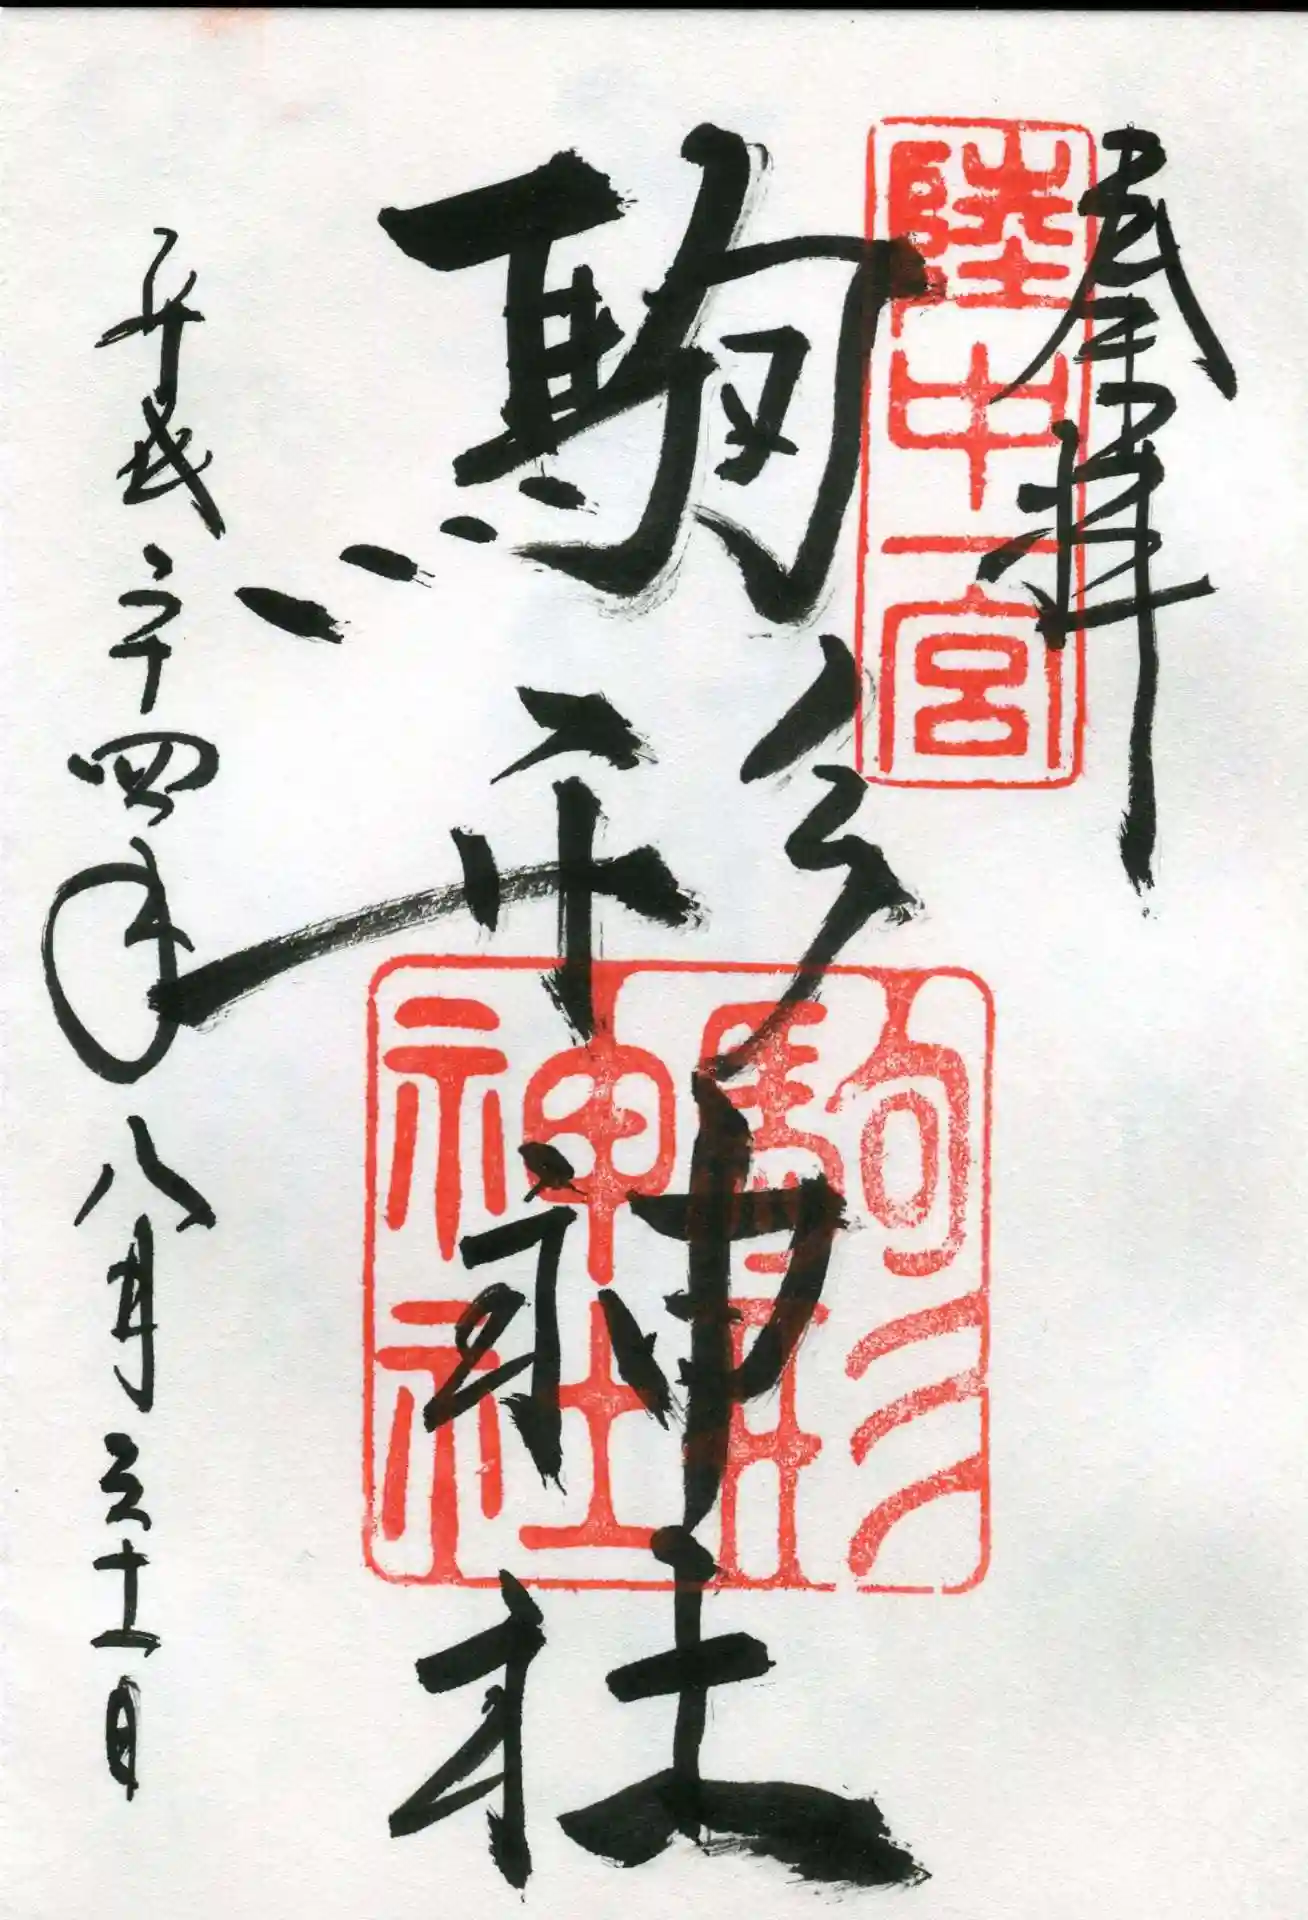 奉拝
陸中一宮
駒形神社
駒形
神社
平成二十四年八月三十一日